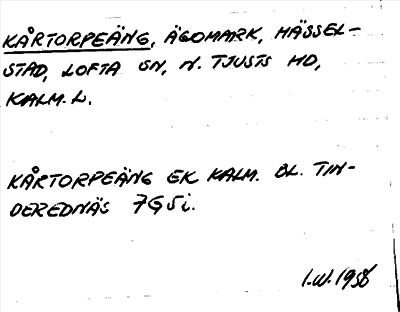 KÅRTORPEÄNG, ÄGOMARK, HÄSSEL-
STAD, LOFTA SN, N. TJUSTS HD,
KALM. L.
KÅRTORPEÄNG EK KALM. BL. TIN-
DEREDNÄS 7G5i.
I.W. 1958